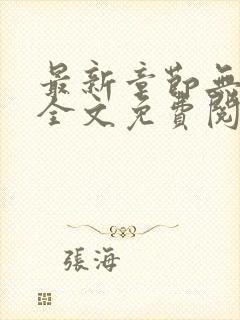 最新章節無
全文免費閱
張海